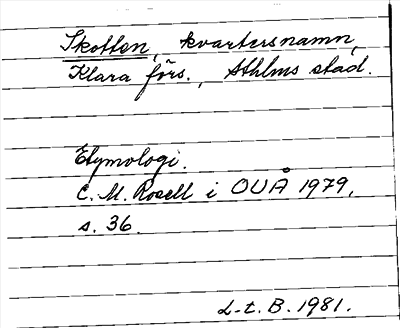 Skotten, kvartersnamn,
Klara förs., Sthlms stad.
Etymologi.
C. M. Rosell i OUÅ 1979,
s. 36.
L-t. B. 1981.